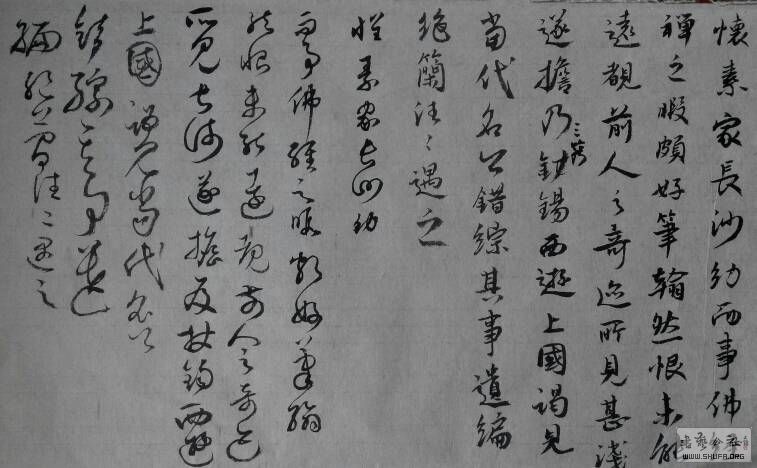 懷素家長沙幼而事佛
禪之暇頗好筆翰然恨未能
遠覩前人之奇迹所見甚淺
遂擔錫西遊上國謁見
當代名公錯綜其事遺編
絕簡往々遇之
懷素家長沙幼
而事佛經之暇頗好筆翰
然恨未能遠覩前人之奇迹
所見甚淺遂擔笈杖錫西遊
上國謁見當代名公
錯綜其事遺
編絕簡往々遇之
WWW.SHUFA.ORG